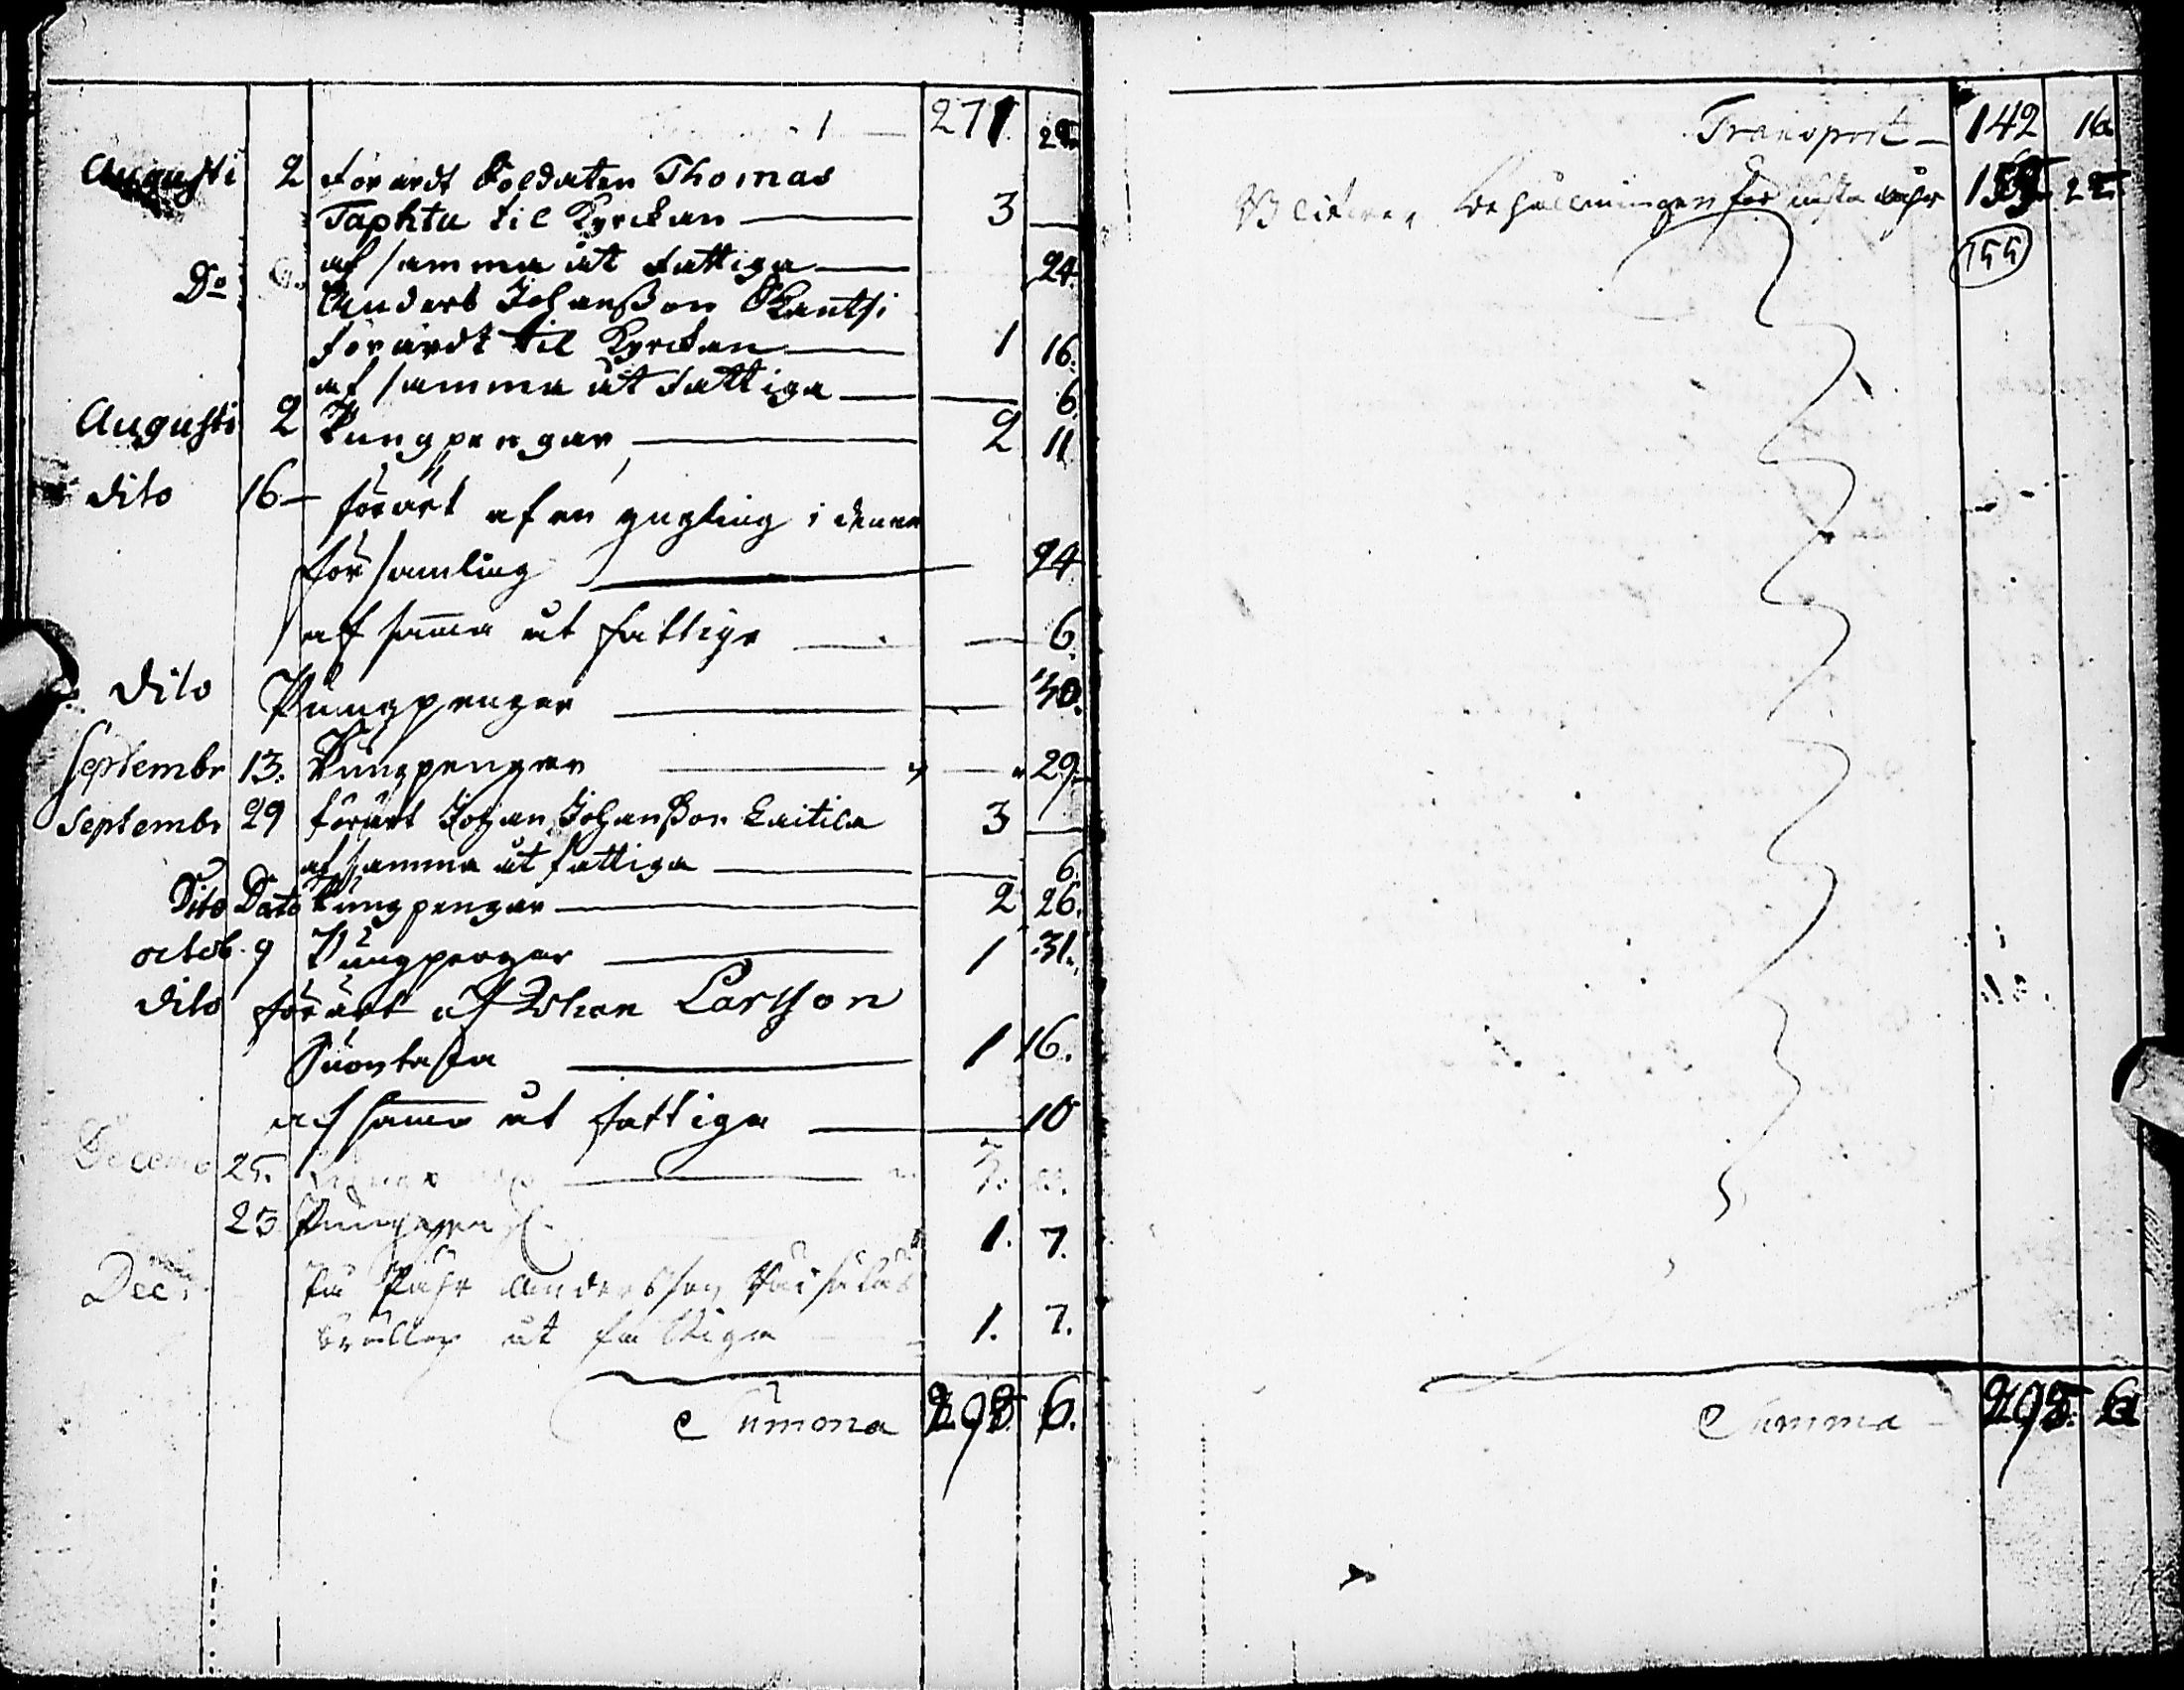 271. 25.
Augusti 2 förärdt Soldaten Thomas
Taphta til Kyrckan — 3 —
af samma åt Fattiga — 24.
Do Anders Johanßon
förärdt til Kyrckan — 1 16.
af samma åt Fattiga — — 6.
Augusti 2 Pungpengar — 2 11
dito 16 — förärt af en yngling i denna
församling — 24
af sama åt fattiga — — 6.
dito Pungpengar — — 30.
Septembr 13. Pungpengar — — 29.
Septembr 29 förärt Johan Johanßon Laitila 3 —
af samma åt fattiga — — 6.
Dito Dato Pungpengar — 2 26.
octob. 9 Pungpengar — 1 31.
dito förärt af Johan Larsson
— 1 16.
af sama åt fattiga — — 10
Decemb 25. —
23 1. 7.
Dec. På Påhr Andersson
bröllop åt fattiga 1. 7.
Summa 298. 6.
Transport — 142 16.
Blifwer behållningen för nästa åhr 155. 22.
155
Summa — 298. 6